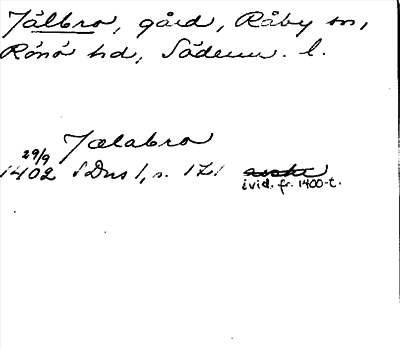 Jälbro, gård, Råby sn,
Rönö hd, Söderm. l.
Jælabro
29/9
1402 SDns 1, s. 171
i vid. fr. 1400-t.